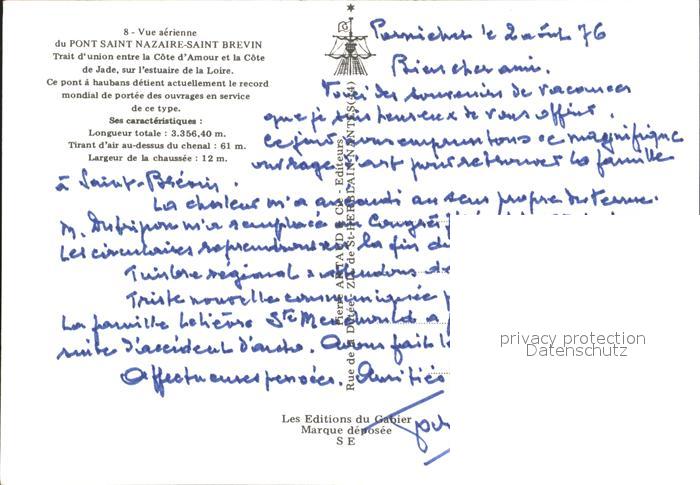 8 - Vue aérienne
du PONT SAINT NAZAIRE-SAINT BREVIN
Trait d'union entre la Côte d'Amour et la Côte
de Jade, sur l'estuaire de la Loire.
Ce pont à haubans détient actuellement le record
mondial de portée des ouvrages en service
de ce type.
Ses caractéristiques :
Longueur totale : 3.356,40 m.
Tirant d'air au-dessus du chenal : 61 m.
Largeur de la chaussée : 12 m.
Pornichet le 2 août 76
Bien cher ami.
Voici des souvenirs de vacances
que je suis heureux de vous offrir.
ce jour, nous empruntons ce magnifique
ouvrage d'art pour retrouver la famille
à Saint-Brévin.
La chaleur m'a au sens propre du terme.
M. m'a remplacé au Congrès
Les circulaires reprendront la fin
Timbre régional : attendons
Triste nouvelle communiquée
La famille Lelièvre Ste a
suite d'accident d'auto. Avons fait
Affectueuses pensées. Amitiés
Pierre ARTAUD & Cie - Editeurs
Rue de la Dutée - Z.I.L. de St-HERBLAIN-NANTES (44)
Les Editions du Gabier
Marque déposée
S E
privacy protection
Datenschutz